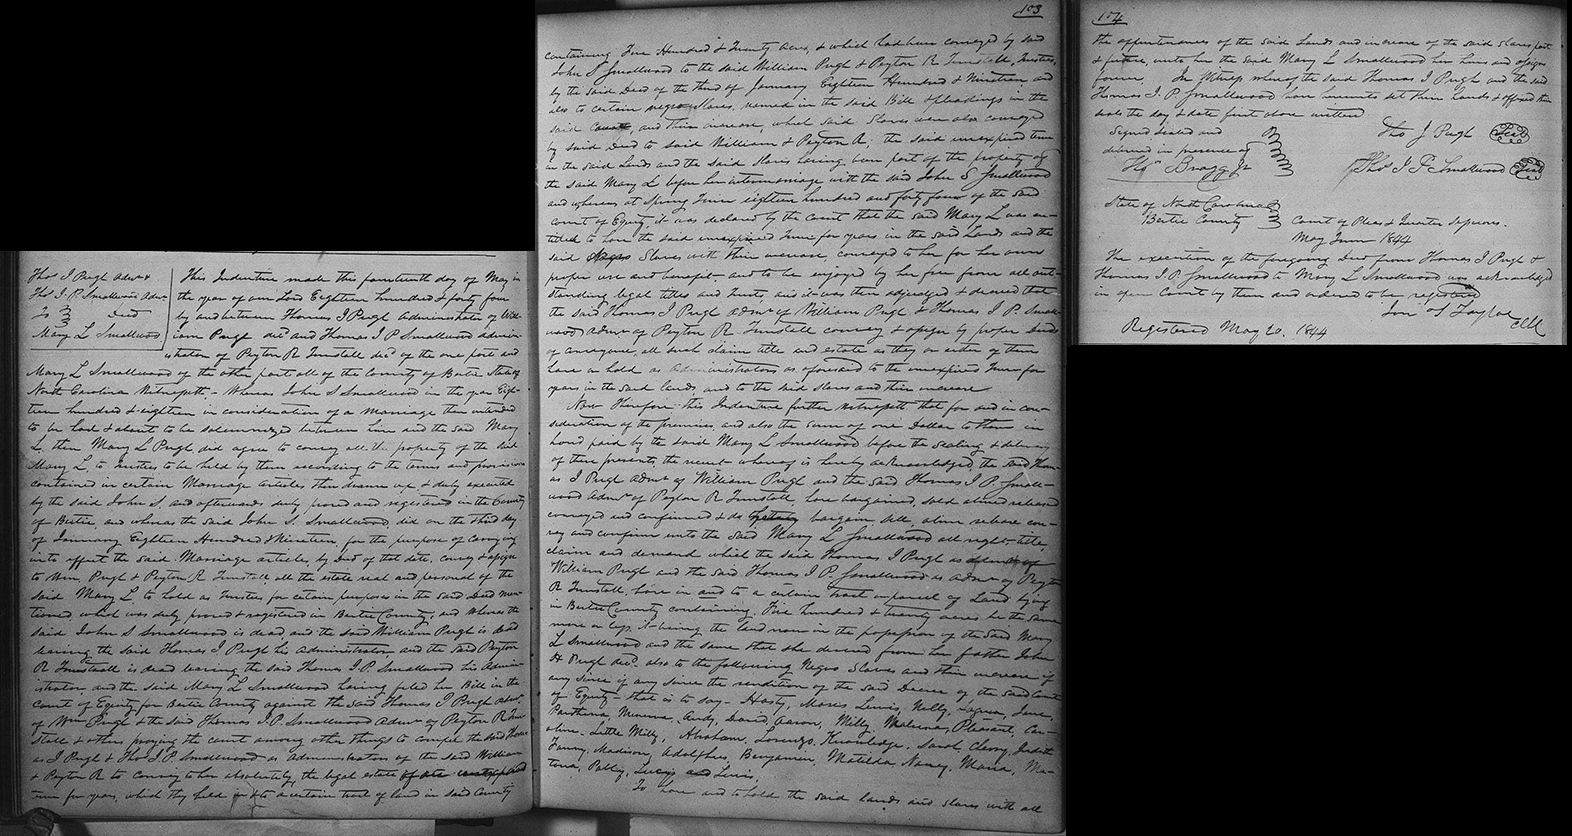 Tho^s I Pugh Adm^r &
Tho^s I. P. Smallwood Adm^r
To Deed
Mary L Smallwood
This Indenture made this fourteenth day of May in
the year of our Lord Eighteen hundred & forty four
by and between Thomas I Pugh Administrator of Will-
iam Pugh dec^d and Thomas I P Smallwood admin-
istrator of Peyton R Tunstall dec^d of the one part and
Mary L Smallwood of the other part all of the County of Bertie State of
North Carolina Witnesseth, - Whereas John S Smallwood in the year Eigh-
teen hundred & eighteen in consideration of a Marriage then intended
to be had & about to be solemnized between him and the said Mary
L, then Mary L Pugh, did agree to convey all the property of the said
Mary L, to Trustees to be held by them according to the terms and provisions
contained in certain Marriage articles then drawn up & duly executed
by the said John S. and afterwards duly proved and registered in the County
of Bertie, and whereas the said John S. Smallwood, did on the third day
of January Eighteen Hundred & Nineteen, for the purpose of carrying
into effect the said Marriage articles, by deed of that date, convey & assign
to Wm. Pugh & Peyton R Tunstall all the estate real and personal of the
said Mary L to hold as Trustees for certain purposes in the said Deed men-
tioned which was duly proved & registered in Bertie County, and whereas the
said John S Smallwood is dead, and the said William Pugh is dead
leaving the said Thomas I Pugh his Administrator, and the said Peyton
R Tunstall is dead leaving the said Thomas I. P. Smallwood his Admin-
istrator, and the said Mary L Smallwood having filed her Bill in the
Court of Equity for Bertie County against the said Thomas I Pugh adm^r
of Wm Pugh & the said Thomas I. P. Smallwood Adm^r of Peyton R Tun-
stall & others praying the court among other things to compel the said Thom-
as I Pugh & Tho^s I P. Smallwood as Administrators of the said William
& Peyton R to convey to her absolutely, the legal estate
term for years, which they held in & to a certain tract of land in said County
103
containing Five Hundred & Twenty Acres, & which had been conveyed by said
John S Smallwood to the said William Pugh & Peyton R Tunstall, Trustees,
by the said Deed of the third of January Eighteen Hundred & Nineteen and
also to certain negro slaves, named in the said Bill & pleadings in the
said Court, and their increase, which said Slaves were also conveyed
by said Deed to said William & Peyton R, the said unexpired term
in the said Lands and the said slaves having been part of the property of
the said Mary L before her intermarriage with the said John S Smallwood
and whereas, at Spring Term eighteen hundred and forty four of the said
Court of Equity, it was declared by the court that the said Mary L was en-
titled to have the said unexpired Term for years in the said Lands and the
said Slaves with their increase, conveyed to her for her own
proper use and benefit - and to be enjoyed by her free from all out-
standing legal titles and trusts, and it was then adjudged & decreed that
the said Thomas I Pugh adm^r of William Pugh & Thomas I P. Small-
wood Adm^r of Peyton R Tunstall convey & assign by proper deeds
of conveyance, all such claim title and estate as they or either of them
have or hold as Administrators as aforesaid to the unexpired Term for
years in the said lands and to the said slaves and their increase
Now Therefore this Indenture further witnesseth that for and in con-
sideration of the premises, and also the sum of one Dollar to them in
hand paid by the said Mary L Smallwood before the sealing & delivery
of these presents, the receipt whereof is hereby acknowledged, the said Thom-
as I Pugh Adm^r of William Pugh and the said Thomas I P. Small-
wood Adm^r of Peyton R Tunstall have bargained, sold aliened released
conveyed and confirmed & do bargain sell, alien release con-
vey and confirm unto the said Mary L Smallwood all right, title,
claim and demand which the said Thomas I Pugh as adm^r of
William Pugh and the said Thomas I P. Smallwood as adm^r of Peyton
R Tunstall, have in and to a certain Tract or parcel of Land lying
in Bertie County containing, Five hundred & twenty acres be the same
more or less, it being the land now in the possession of the said Mary
L Smallwood and the same that she derived from her father John
H Pugh dec^d. also to the following Negro Slaves and their increase if
any since if any since the rendition of the said Decree of the said Court
of Equity - that is to say - Hasty, Moses, Lewis, Nelly, June,
Parthena, Minerva, Andy, David, Aaron, Milly, Malvina, Pleasant, Car-
oline, Little Milly, Abraham, Lorenzo, Knowledge, Sarah, Cherry, Judith
Fanny, Madison, Adolphus, Benjamin, Matilda, Nancy, Maria, Mo-
Patsy, Lucy and Lewis,
To have and to hold the said lands and slaves with all
104
the appurtenances of the said Lands and increase of the said Slaves past
& future, unto her the said Mary L Smallwood her heirs and assigns
forever. In Witness whereof the said Thomas I Pugh and the said
Thomas I. P Smallwood have hereunto set their hands & affixed their
seals the day & date first above written
Signed sealed and
delivered in presence of
Tho^s Bragg Jr
Tho J Pugh Seal
Tho^s I P Smallwood Seal
State of North Carolina
Bertie County
Court of Pleas & Quarter Sessions.
May Term 1844
The execution of the foregoing Deed from Thomas I Pugh &
Thomas I P Smallwood to Mary L Smallwood was acknowledged
in open Court by them and ordered to be registered
Jon^n S Taylor CLk
Registered May 20. 1844